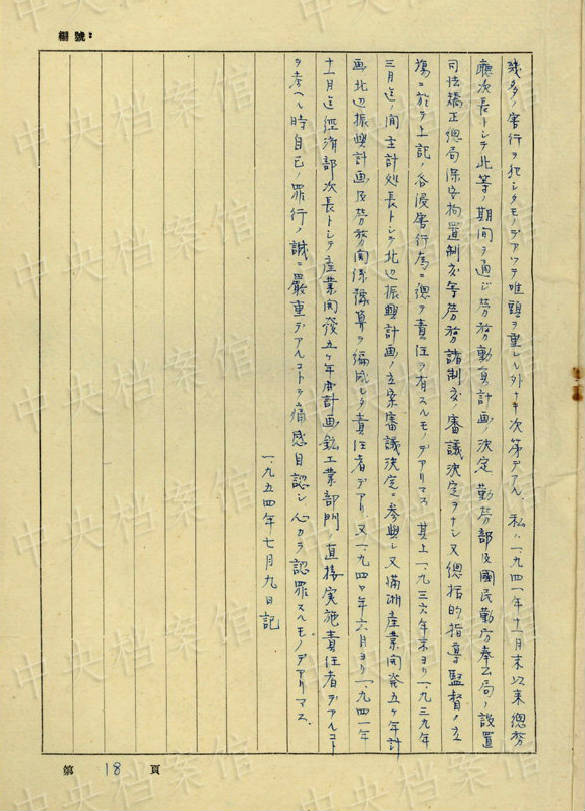 編號：
幾多ノ害行ヲ犯シタモノデアツテ唯頭ヲ垂レル外ナキ次第デアル、私ハ一、九四一年十一月末以来總務
廳次長トシテ此等ノ期間ヲ通ジ労務動員計画ノ決定勤労部及國民勤労奉公局ノ設置
司法矯正總局保安拘置制度等労務諸制度ノ審議決定ヲナシ又總括的指導監督ノ立
場ニ於テ上記ノ各侵害行為ニ總テ責任ヲ有スルモノデアリマス 其上一、九三六年末ヨリ一、九三九年
三月迄ノ間主計処長トシテ北辺振興計画ノ立案審議決定ニ参與シ又満洲産業開発五ヶ年計
画北辺振興計画及労務関係豫算ヲ編成シタ責任者デアリ、又一、九四〇年六月ヨリ一、九四一年
十一月迄經濟部次長トシテ産業開発五ヶ年計画鉱工業部門ノ直接実施責任者デアルコト
ヲ考ヘル時自己ノ罪行ノ誠ニ嚴重デアルコトヲ痛感自認シ心カラ認罪スルモノデアリマス、
一、九五四年七月九日記
第 18 頁
中央档案馆